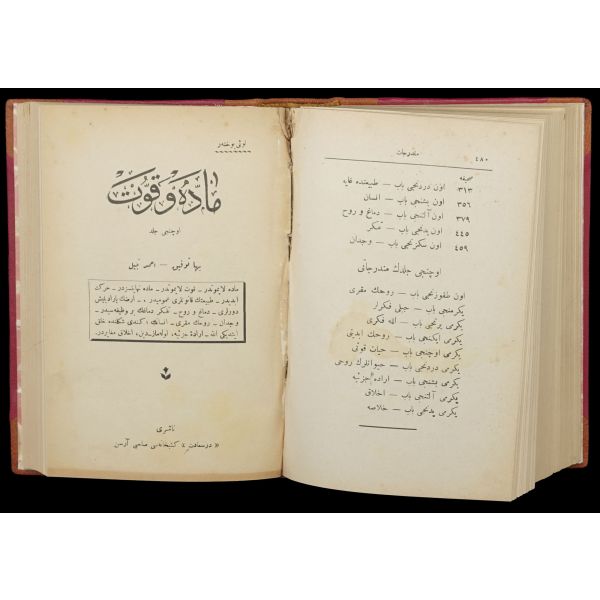 لوئی بوخنه‌ر
مادّه و قوّت
اوچنجی جلد
بها توفیق — احمد نبیل
ماده لایموتدر ـ قوت لایموتدر ـ ماده نهایتسزدر ـ حرکت
ابدیدر ـ طبیعتك قانونلری عمومیدر ـ ارضك یارادیلیش
دورلری ـ دماغ و روح ـ تفکر دماغك بر وظیفه‌سیدر ـ
وجدان ـ روحك مقری ـ انسانك کندی شکلنده خلق
ایتدیکی الله ـ ارادۀ جزئیه،
ناشری
« درسعادت » کتبخانه‌سی صاحبی آرسن
٤٨٠
مندرجات
صحیفه
اون دردنجی باب — طبیعتده غایه ٣١٣
اون بشنجی باب — انسان ٣٥٦
اون آلتنجی باب — دماغ و روح ٣٧٩
اون یدنجی باب — تفکر ٤٤٥
اون سکزنجی باب — وجدان ٤٥٩
اوچنجی جلدك مندرجاتی
اون طقوزنجی باب — روحك مقری
یکرمنجی باب — جبلی فکرلر
یکرمی برنجی باب — الله فکری
یکرمی ایکنجی باب — روحك ابدیتی
یکرمی اوچنجی باب — حیات قوتی
یکرمی دردنجی باب — حیوانلرك روحی
یکرمی بشنجی باب — ارادۀ جزئیه
یکرمی آلتنجی باب — اخلاق
یکرمی یدنجی باب — خلاصه